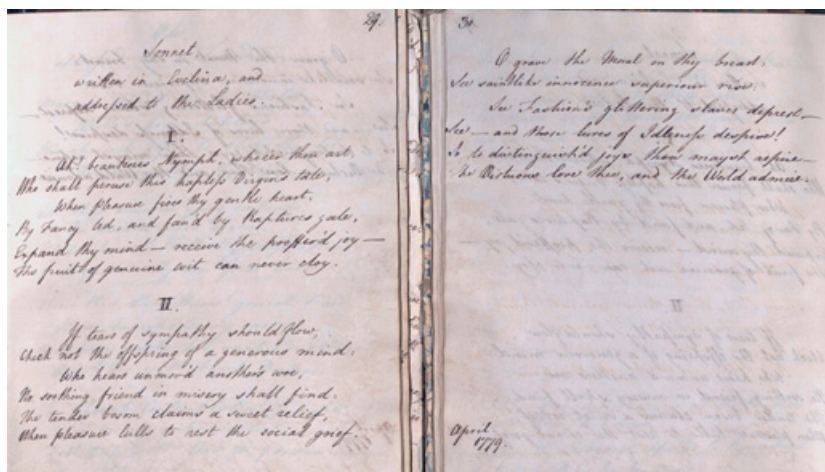 29.
Sonnet.
written in Evelina, and
addressed to the Ladies.
I.
Ah! beauteous Nymph, whoe'er thou art,
Who shall peruse this hapless Virgins tale,
When pleasure fires thy gentle heart,
By Fancy led, and fan'd by Raptures gale,
Expand thy mind — receive the proffer'd joy —
The fruit of genuine wit can never cloy.
II.
If tears of sympathy should flow,
Check not the offspring of a generous mind:
Who hears unmov'd another's woe,
No soothing friend in misery shall find.
The tender bosom claims a sweet relief,
When pleasure lulls to rest the social grief.
30.
O grave the Moral on thy breast.
See saintlike innocence superiour rise.
See Fashion's glittering slaves deprest —
See — and those lures of Idleness despise!
So to distinguish'd joys thou mayst aspire —
The Virtuous love thee, and the World admire.
April
1779.